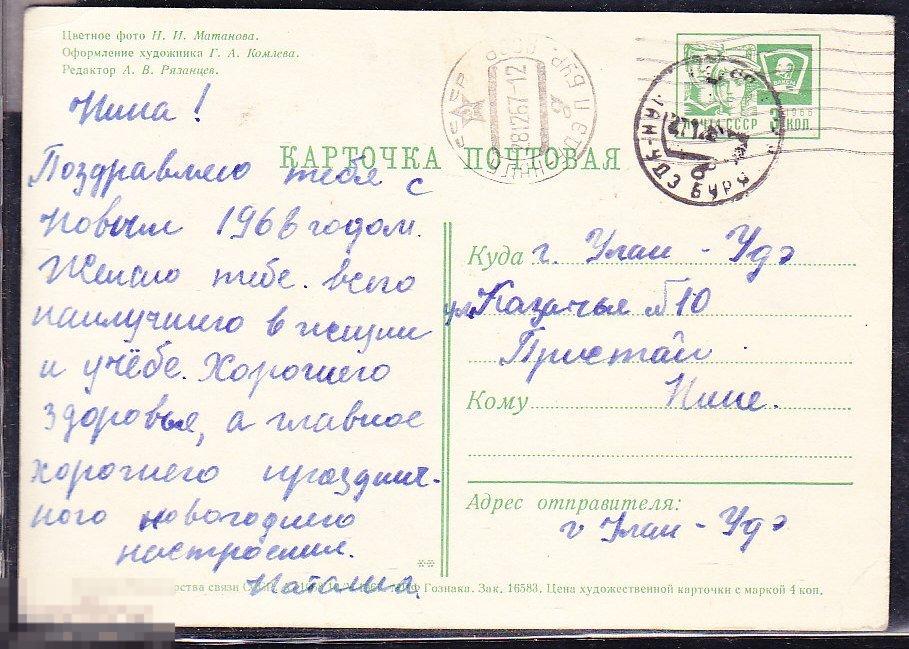 Цветное фото Н. И. Матанова.
Оформление художника Г. А. Комлева.
Редактор А. В. Рязанцев.
ПОЧТА СССР
1966
3 КОП.
ВЛКСМ
СССР
281267-12
УЛАН-УДЭ БУР
КАРТОЧКА ПОЧТОВАЯ
Нина!
Поздравляю тебя с
Новым 1968 годом.
Желаю тебе всего
наилучшего в жизни
и учёбе. Хорошего
здоровья, а главное
хорошего празднич-
ного новогоднего
настроения.
Наташа.
Куда г. Улан-Удэ
ул. Казачья №10
Пристань
Кому Нине.
Адрес отправителя:
г Улан-Удэ
связи
Гознака. Зак. 16583. Цена художественной карточки с маркой 4 коп.